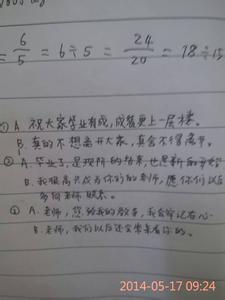 = 6/5 = 6÷5 = 24/20 = 18÷15
① A. 祝大家学业有成,成绩更上一层楼。
B. 真的不想离开大家,真舍不得离开。
② A. 毕业了,是现阶的结束,也是新的开始
B. 我很高兴成为你们的老师,愿你们以后
多向老师联系。
③ A. 老师,您给我的教育,我会铭记在心
B. 老师,我们以后还会常来看你的。
2014-05-17 09:24